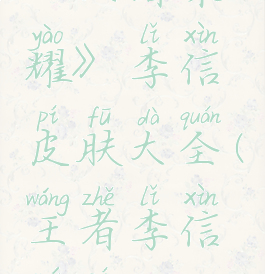 yào lǐ xìn
耀》李信
pí fū dà quán
皮肤大全(
wáng zhě lǐ xìn
王者李信